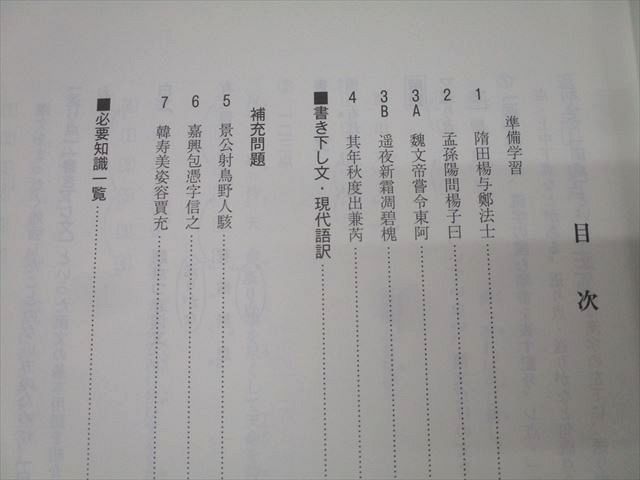 目次
準備学習
1 隋田楊与鄭法士
2 孟孫陽問楊子曰
3A 魏文帝嘗令東阿
3B 遥夜新霜凋碧槐
4 其年秋度出兼芮
■書き下し文・現代語訳
補充問題
5 景公射鳥野人駭
6 嘉興包憑字信之
7 韓寿美姿容賈充
■必要知識一覧